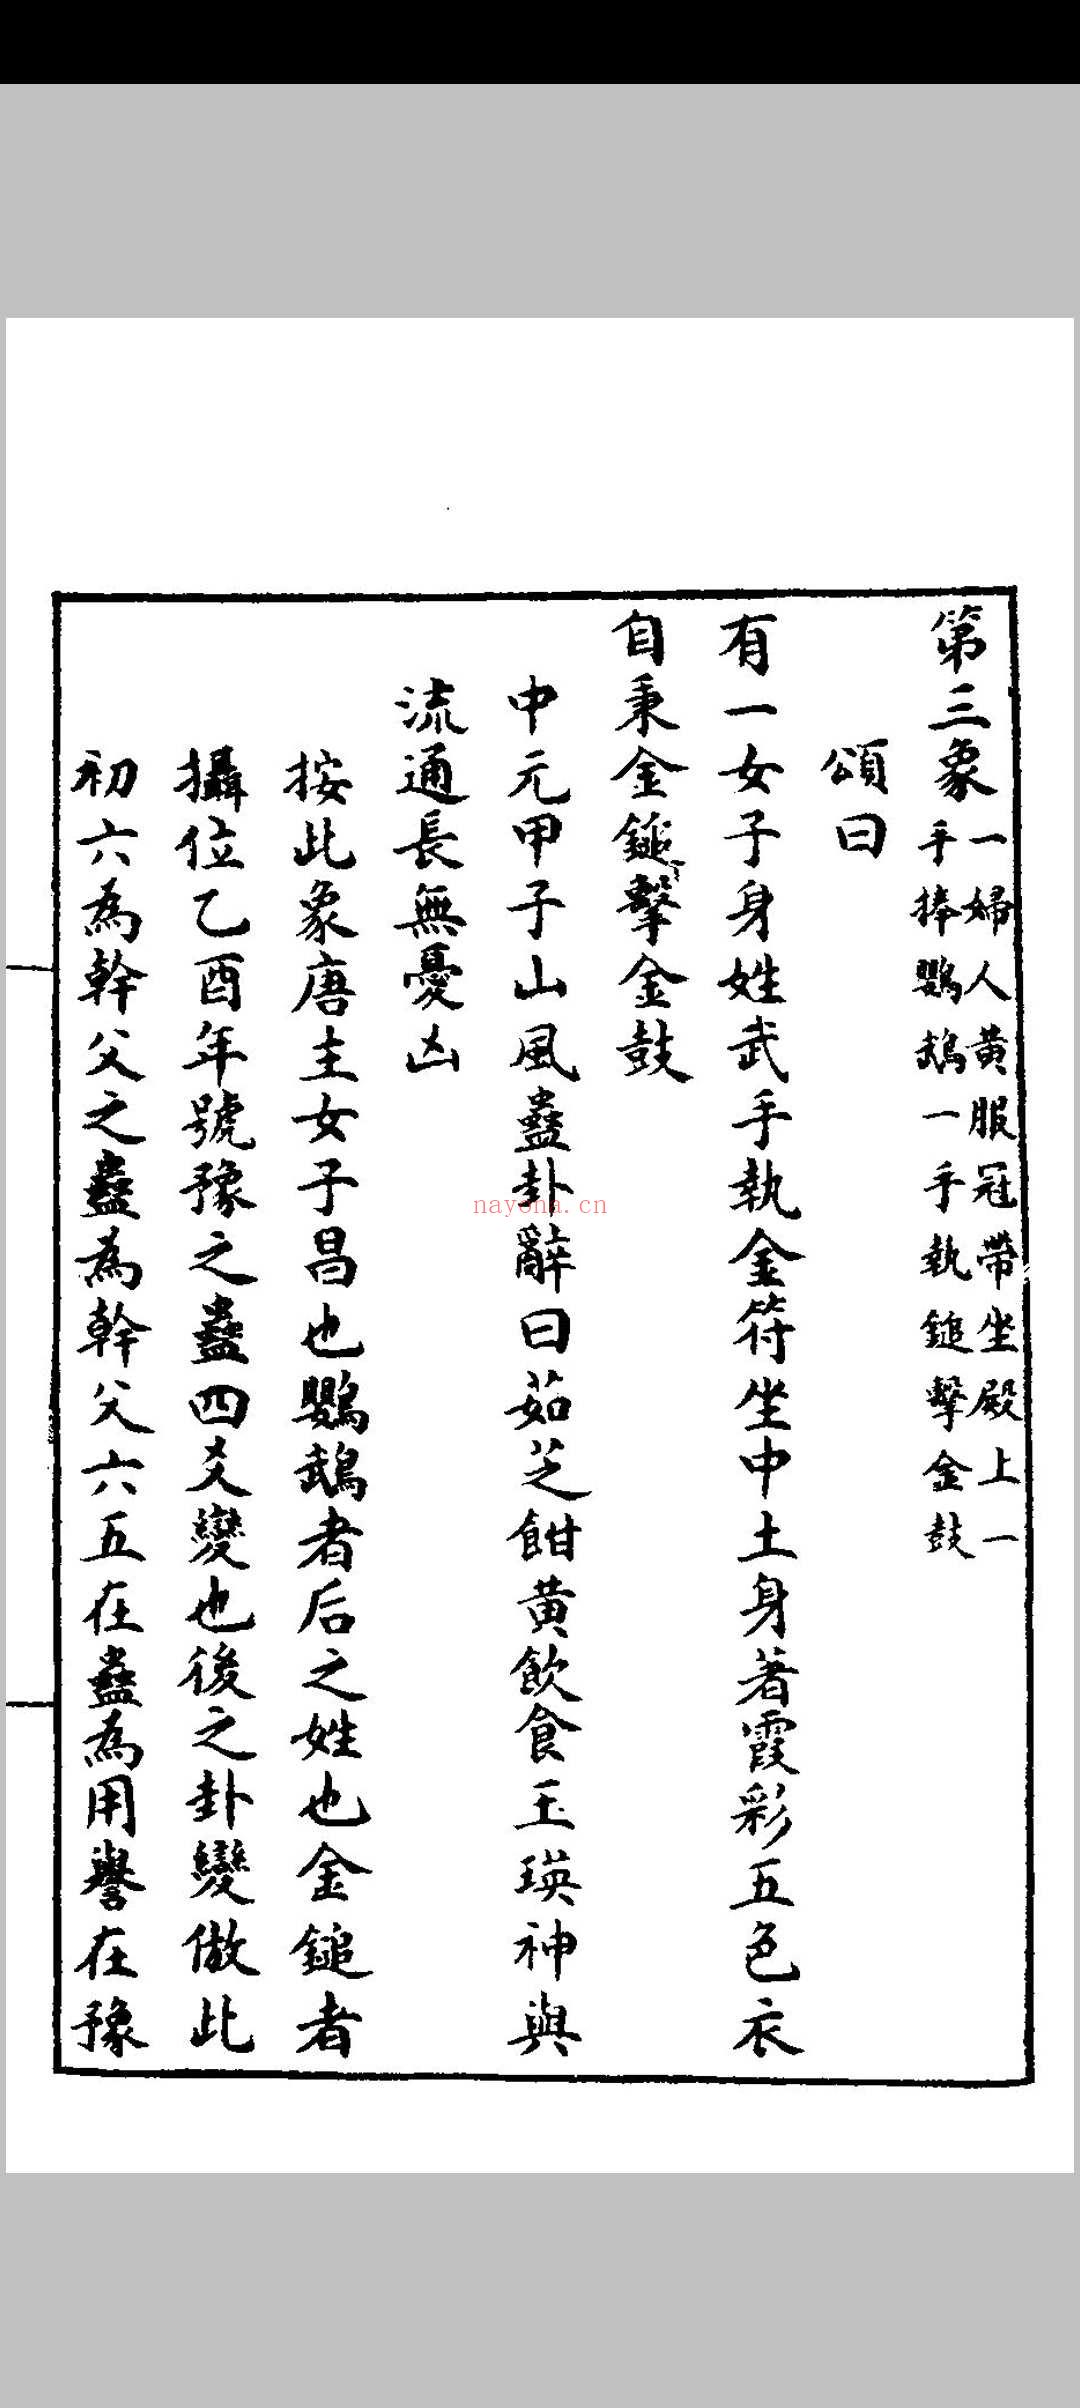 第三象
一婦人黃服冠帶坐殿上一
手捧鸚鵡一手執鎚擊金鼓
頌曰
有一女子身姓武手執金符坐中土身著霞彩五色衣
自秉金鎚擊金鼓
中元甲子山風蠱卦辭曰茹芝餂黃飲食玉瑛神與
流通長無憂凶
按此象唐主女子昌也鸚鵡者后之姓也金鎚者
攝位乙酉年號豫之蠱四爻變也後之卦變倣此
初六為幹父之蠱為幹父六五在蠱為用譽在豫
nayona.cn